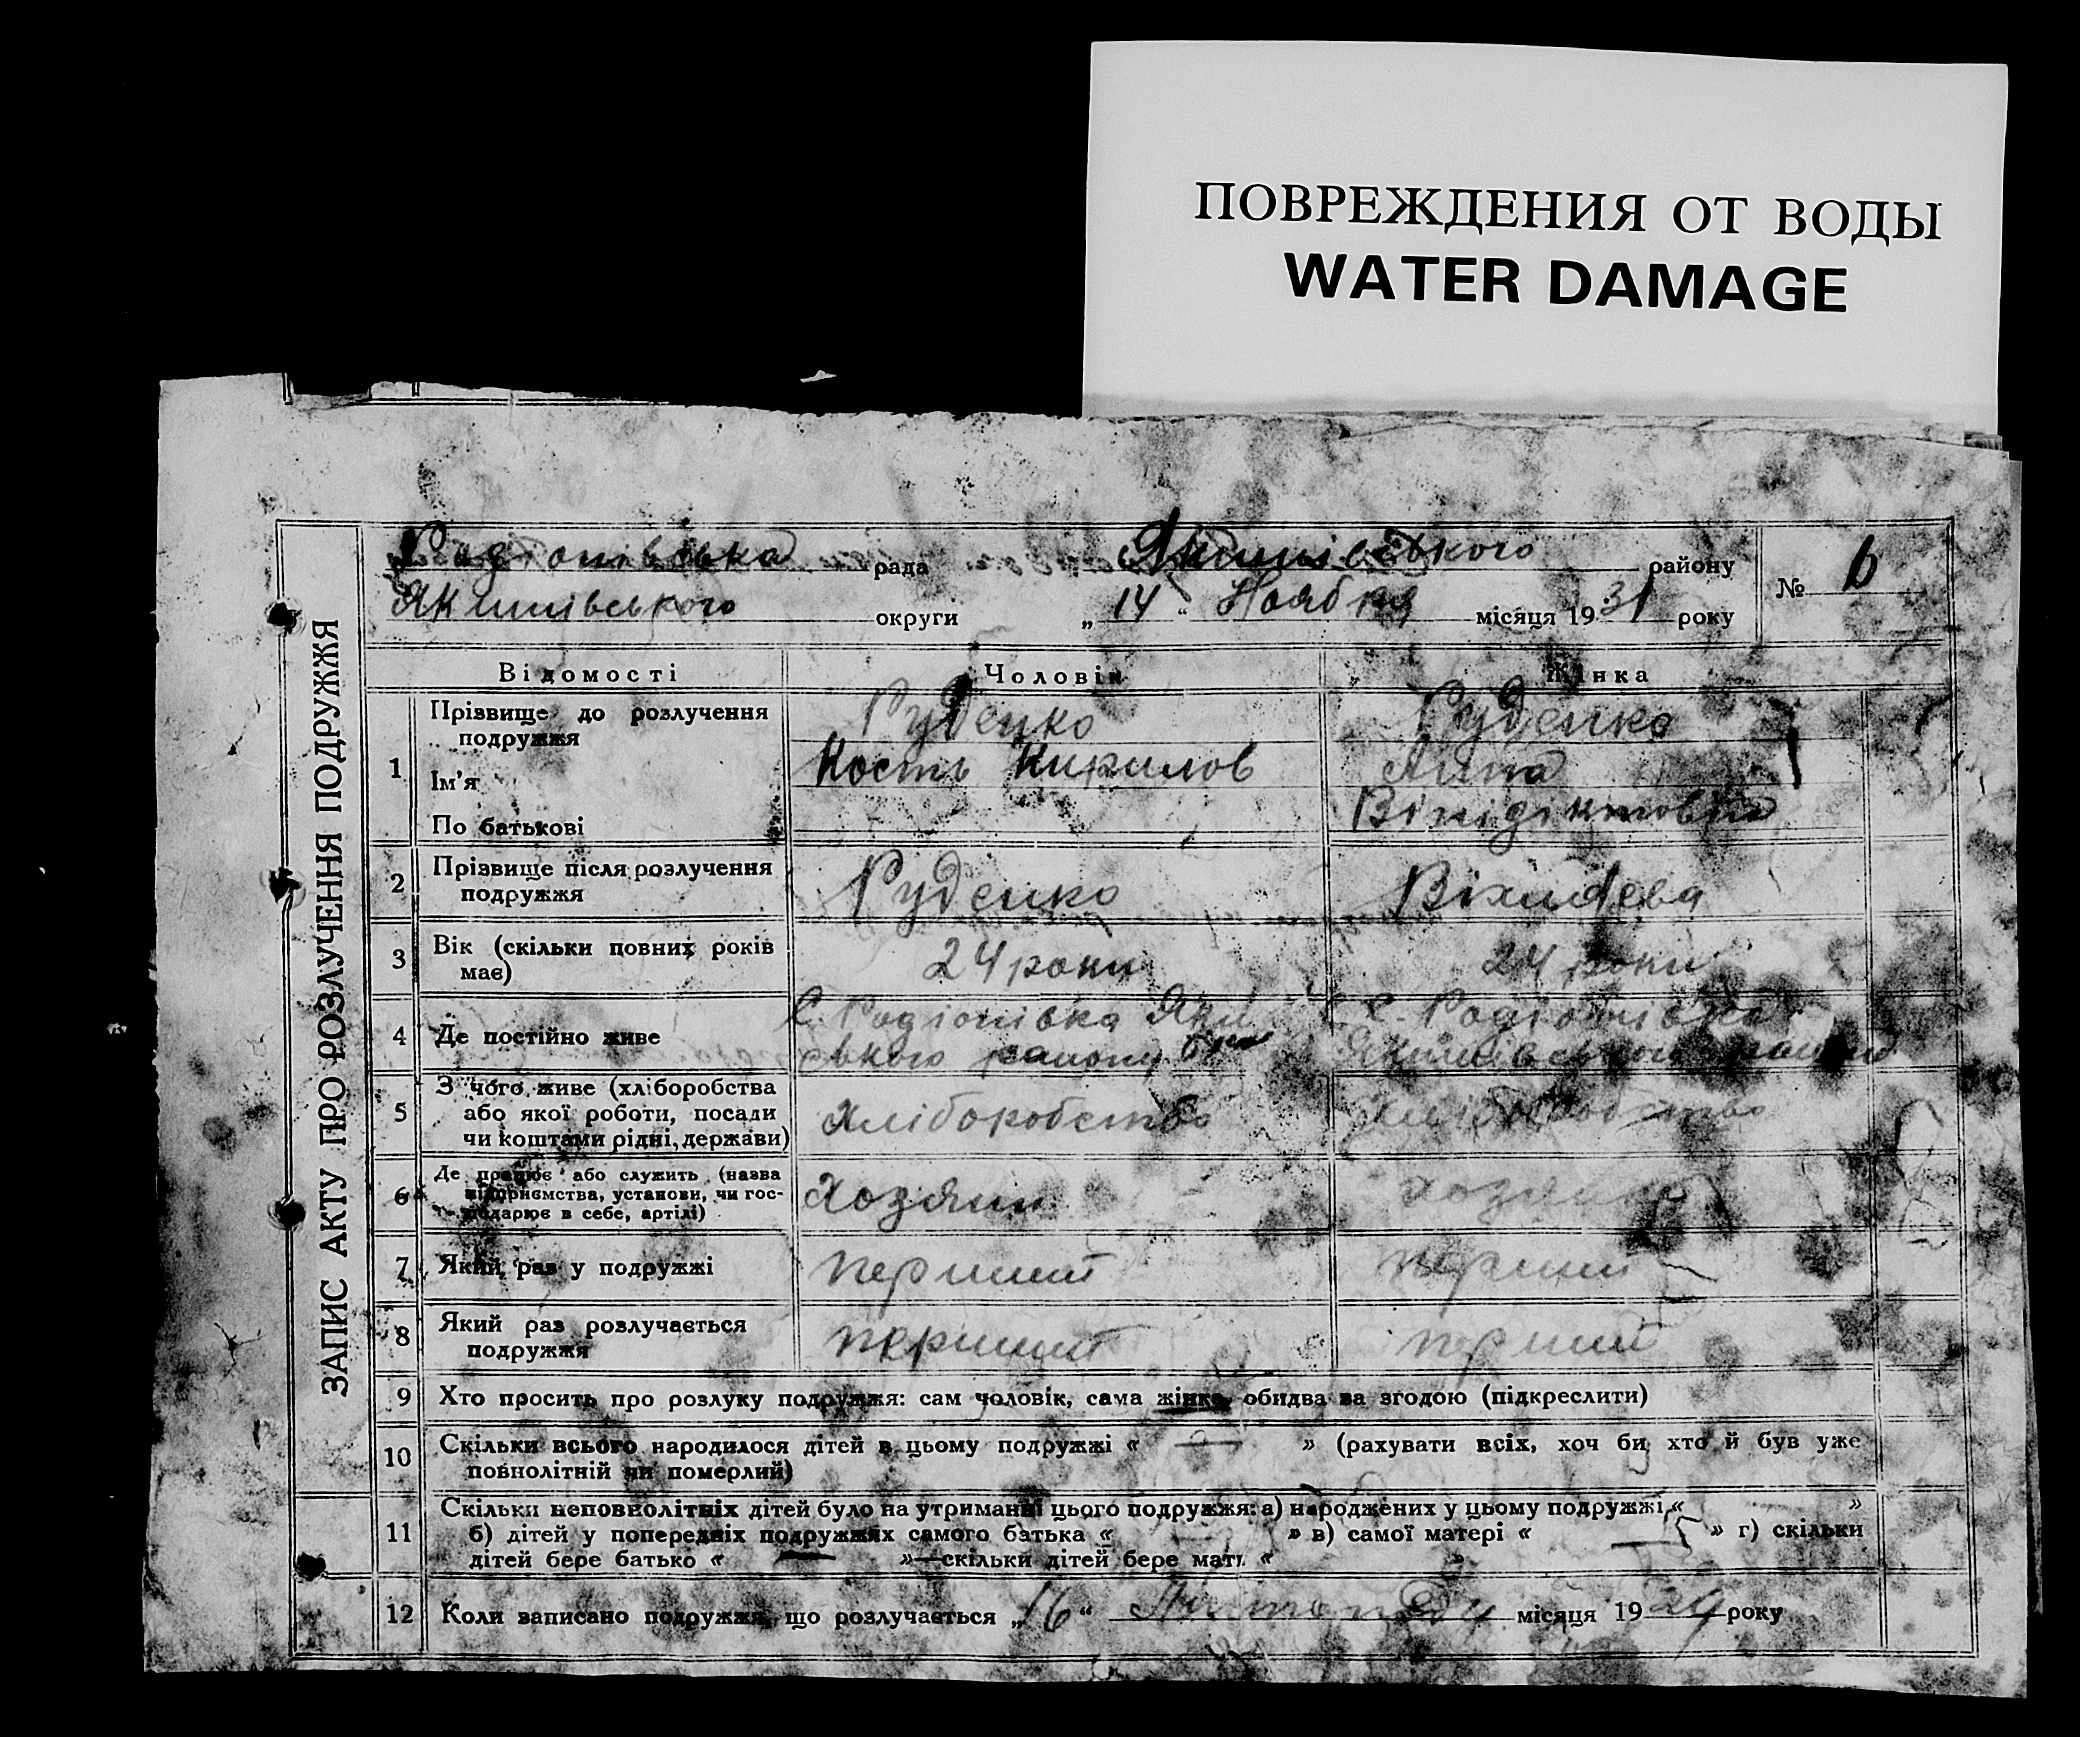 ПОВРЕЖДЕНИЯ ОТ ВОДЫ
WATER DAMAGE
ЗАПИС АКТУ ПРО РОЗЛУЧЕННЯ ПОДРУЖЖЯ
Родіонівська рада Якимівського району № 6
Якимівського округи „ 14 “ Ноября місяця 1931 року
Відомості Чоловік Жінка
1 Прізвище до розлучення Руденко Руденко
подружжя
Ім'я Кость Кирилов Анна
По батькові
2 Прізвище після розлучення Руденко
подружжя
3 Вік (скільки повних років 24 роки 24 роки
має)
4 Де постійно живе С. Родіонівка С. Родіонівка
ського району Якимівського району
5 З чого живе (хліборобства хліборобство хліборобство
або якої роботи, посади
чи коштами рідні, держави)
6 Де працює або служить (назва хозяин
підприємства, установи, чи гос-
подарює в себе, артілі)
7 Який раз у подружжі перший перший
8 Який раз розлучається перший перший
подружжя
9 Хто просить про розлуку подружжя: сам чоловік, сама жінка, обидва за згодою (підкреслити)
10 Скільки всього народилося дітей в цьому подружжі « — » (рахувати всіх, хоч би хто й був уже
повнолітній чи померлий)
11 Скільки неповнолітніх дітей було на утриманні цього подружжя: а) народжених у цьому подружжі « »
б) дітей у попередніх подружжях самого батька « » в) самої матері « — » г) скільки
дітей бере батько « — »—скільки дітей бере мати «
12 Коли записано подружжя, що розлучається „ 16 “ місяця 1929 року